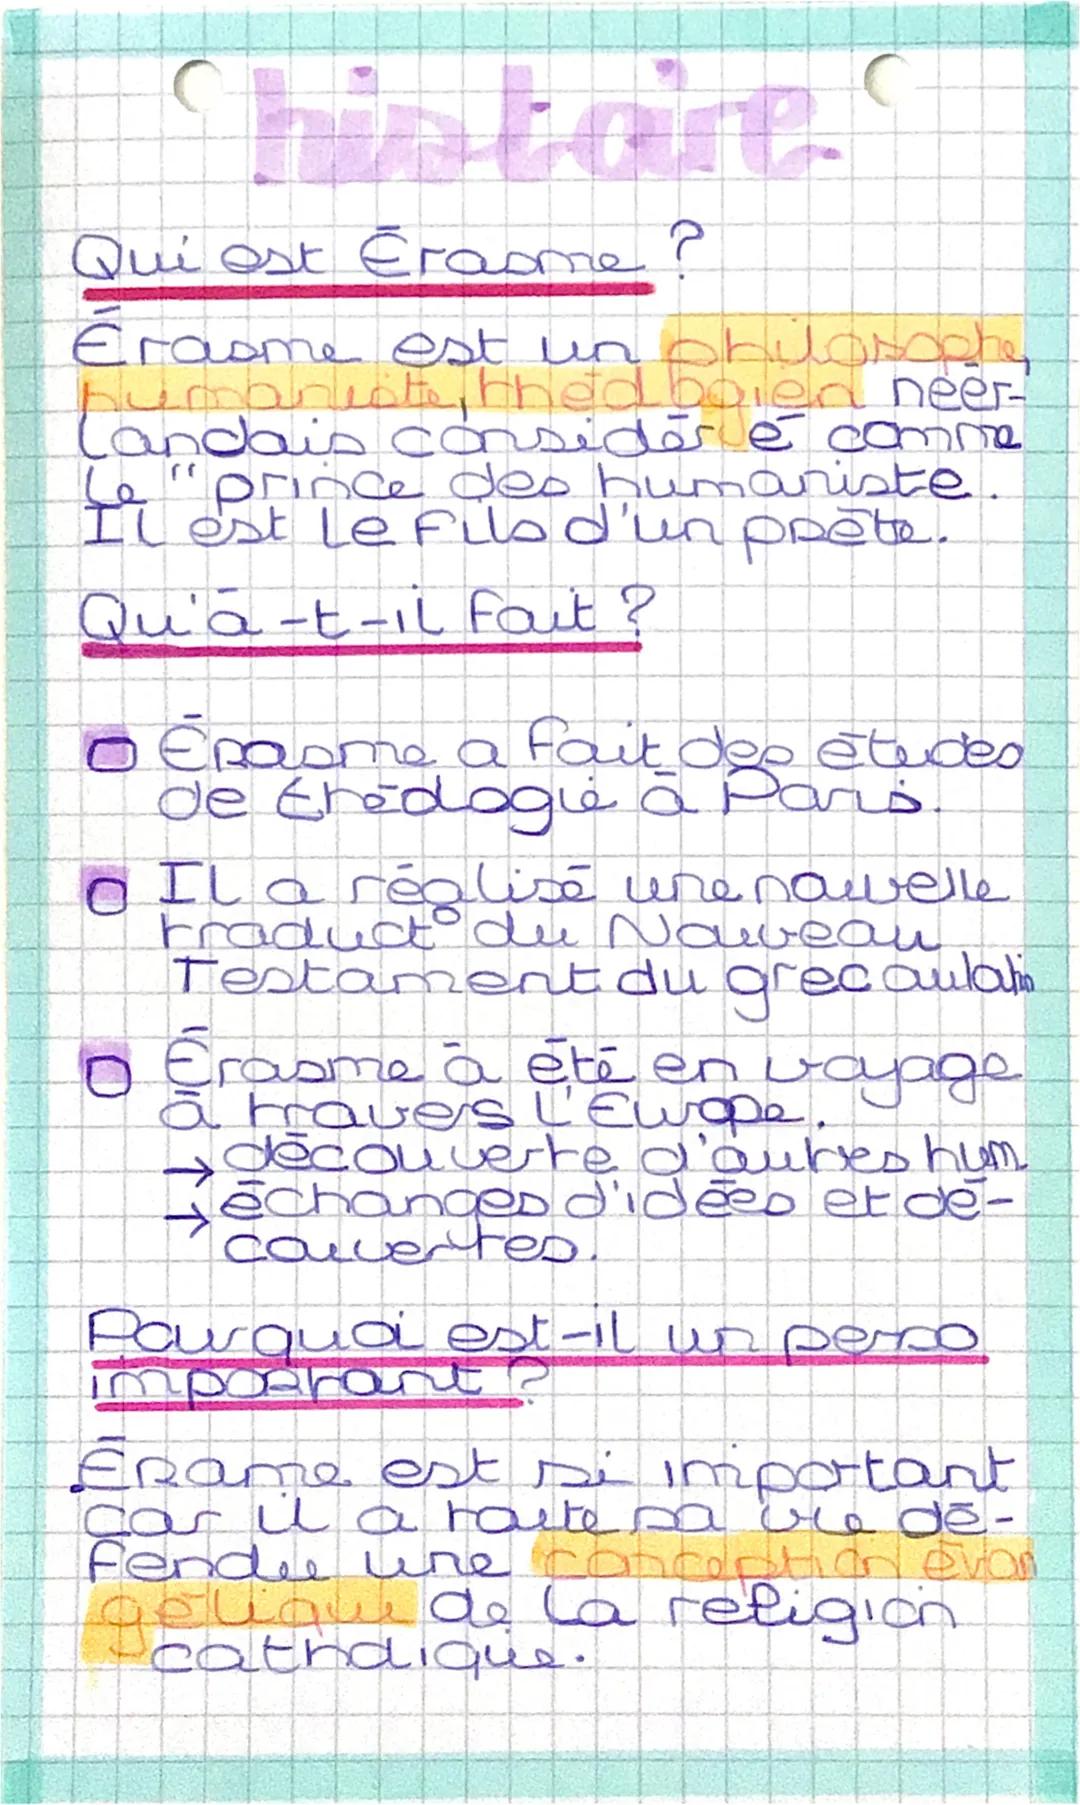 histoire
Qui est Érasme ?
Érasme est un philosophe,
humaniste, théologien néer-
landais considéré comme
le "prince des humaniste.
Il est le fils d'un prète.
Qu'à-t-il fait ?
Érasme a fait des études
de théologie à Paris.
Il a réalisé une nouvelle
traduct° du Nouveau
Testament du grec au latin
Érasme à été en voyage
à travers l'Europe.
→ découverte d'autres hum
→ échanges d'idées et dé-
couvertes.
Pourquoi est-il un perso
important ?
Érame est si important
car il a toute sa vie dé-
fendue une conception évan
gélique de la religion
catholique.